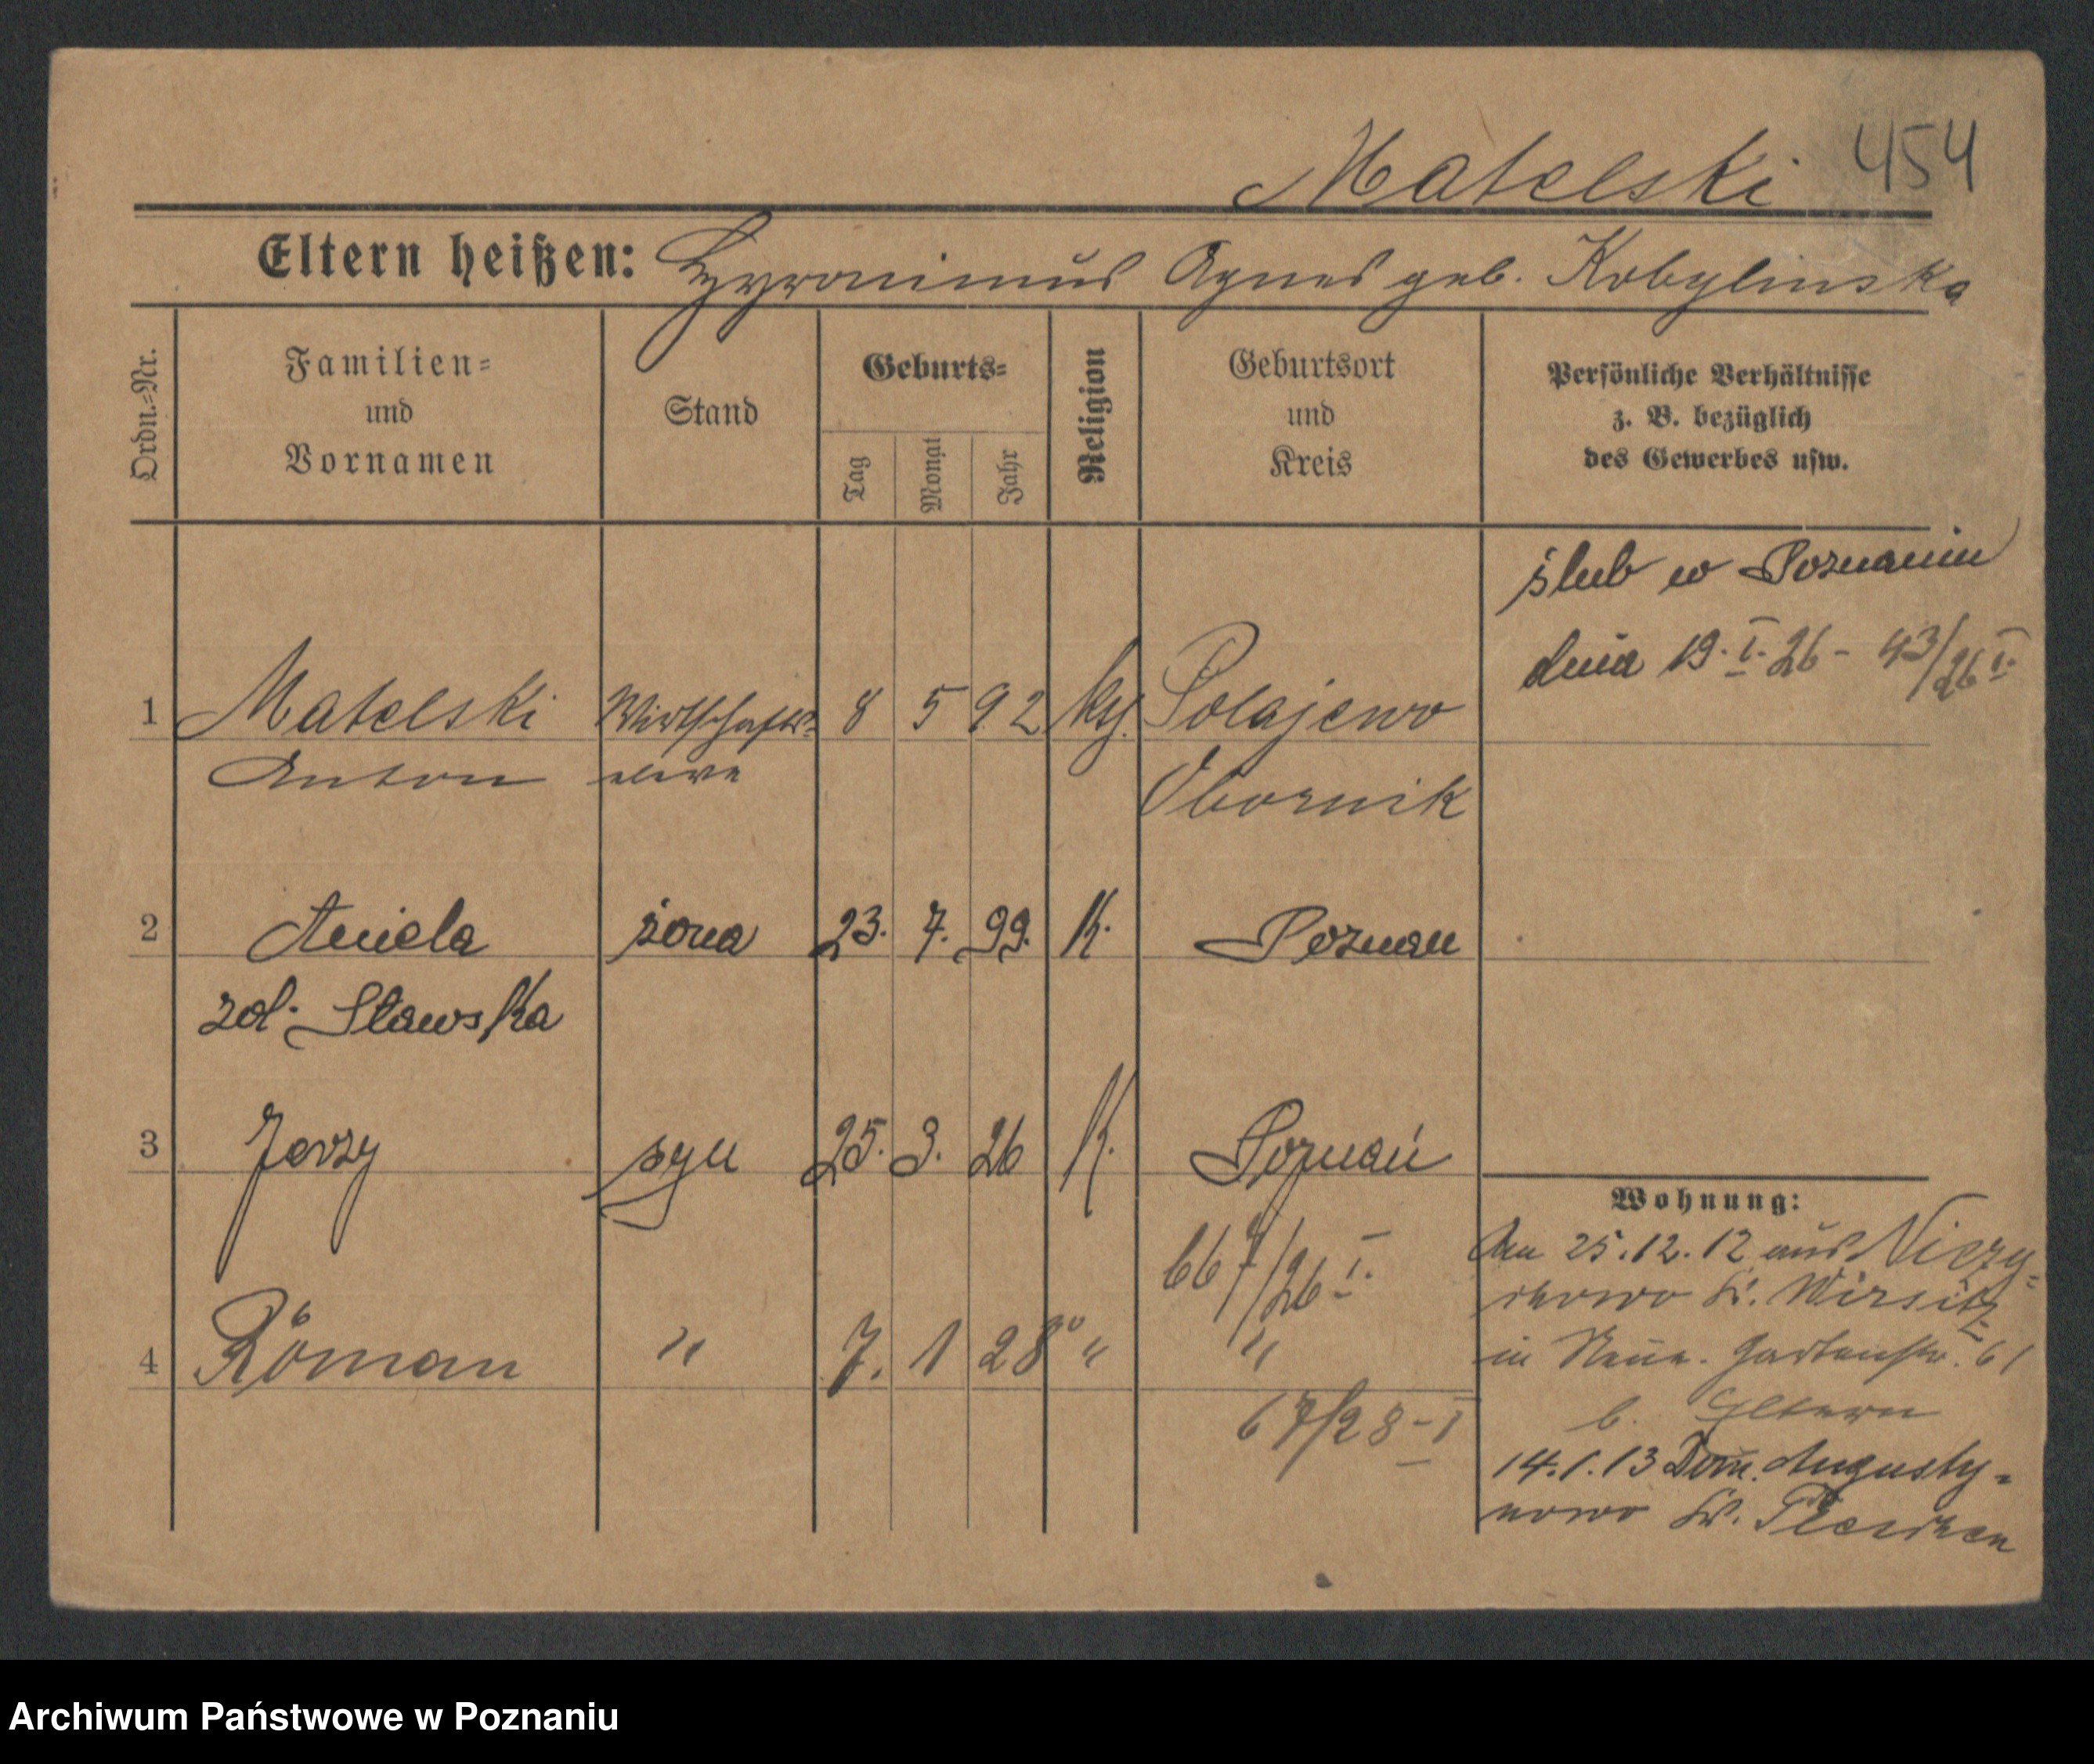 Matelski 454
Eltern heißen: Hyronimus Agnes geb. Kobylinska
Ordn.=Nr.
Familien=
und
Vornamen
Stand
Geburts=
Tag
Monat
Jahr
Religion
Geburtsort
und
Kreis
Persönliche Verhältnisse
z. B. bezüglich
des Gewerbes usw.
ślub w Poznaniu
dnia 19. I. 26 - 43/26 I.
1 Matelski Wirtschafts= 8 5 92 Polajewo
Anton eleve Obornik
2 Aniela żona 23. 7. 99. K. Poznań
zd. Stawska
3 Jerzy syn 25. 3. 26 K. Poznań
667/26 I.
4 Roman " 7. 1 28 " "
67/28-I
Wohnung:
An 25.12.12 aus Niezy=
chowo Kr. Wirsitz
in Neue. Gartenstr. 61
b. Eltern
14.1.13 Dom. Augusty=
nowo Kr. Pleschen
Archiwum Państwowe w Poznaniu